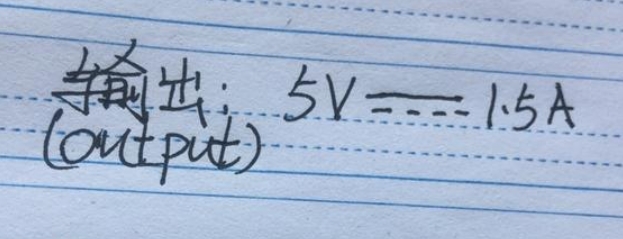 输出: 5V⎓1.5A
(output)